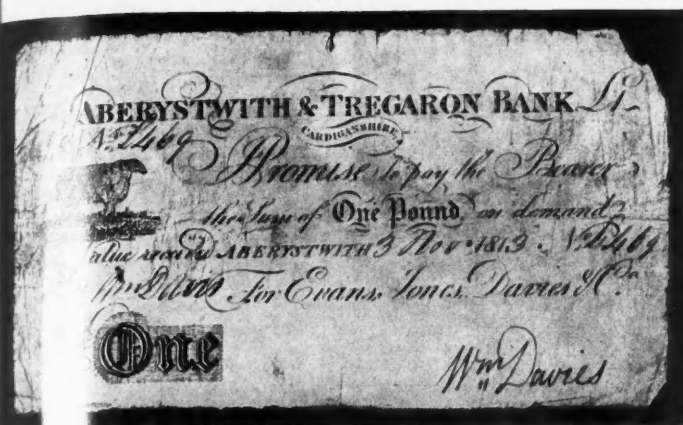 ABERYSTWITH & TREGARON BANK £1
CARDIGANSHIRE
I Promise to pay the Bearer
the Sum of One Pound on demand
Value receiv'd ABERYSTWITH 3 Nov. 1813.
Wm Davies For Evans, Jones, Davies & Co.
One
Wm Davies